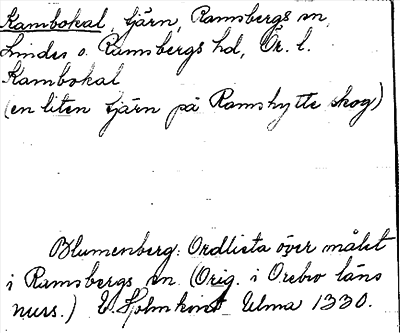 Kambokal, tjärn, Ramsbergs sn,
Lindes o. Ramsbergs hd, Ör. l.
Kambokal
(en liten tjärn på Ramshytte skog)
Blumenberg: Ordlista över målet
i Ramsbergs sn (Orig. i Örebro läns
mus.) Ulma 1330.